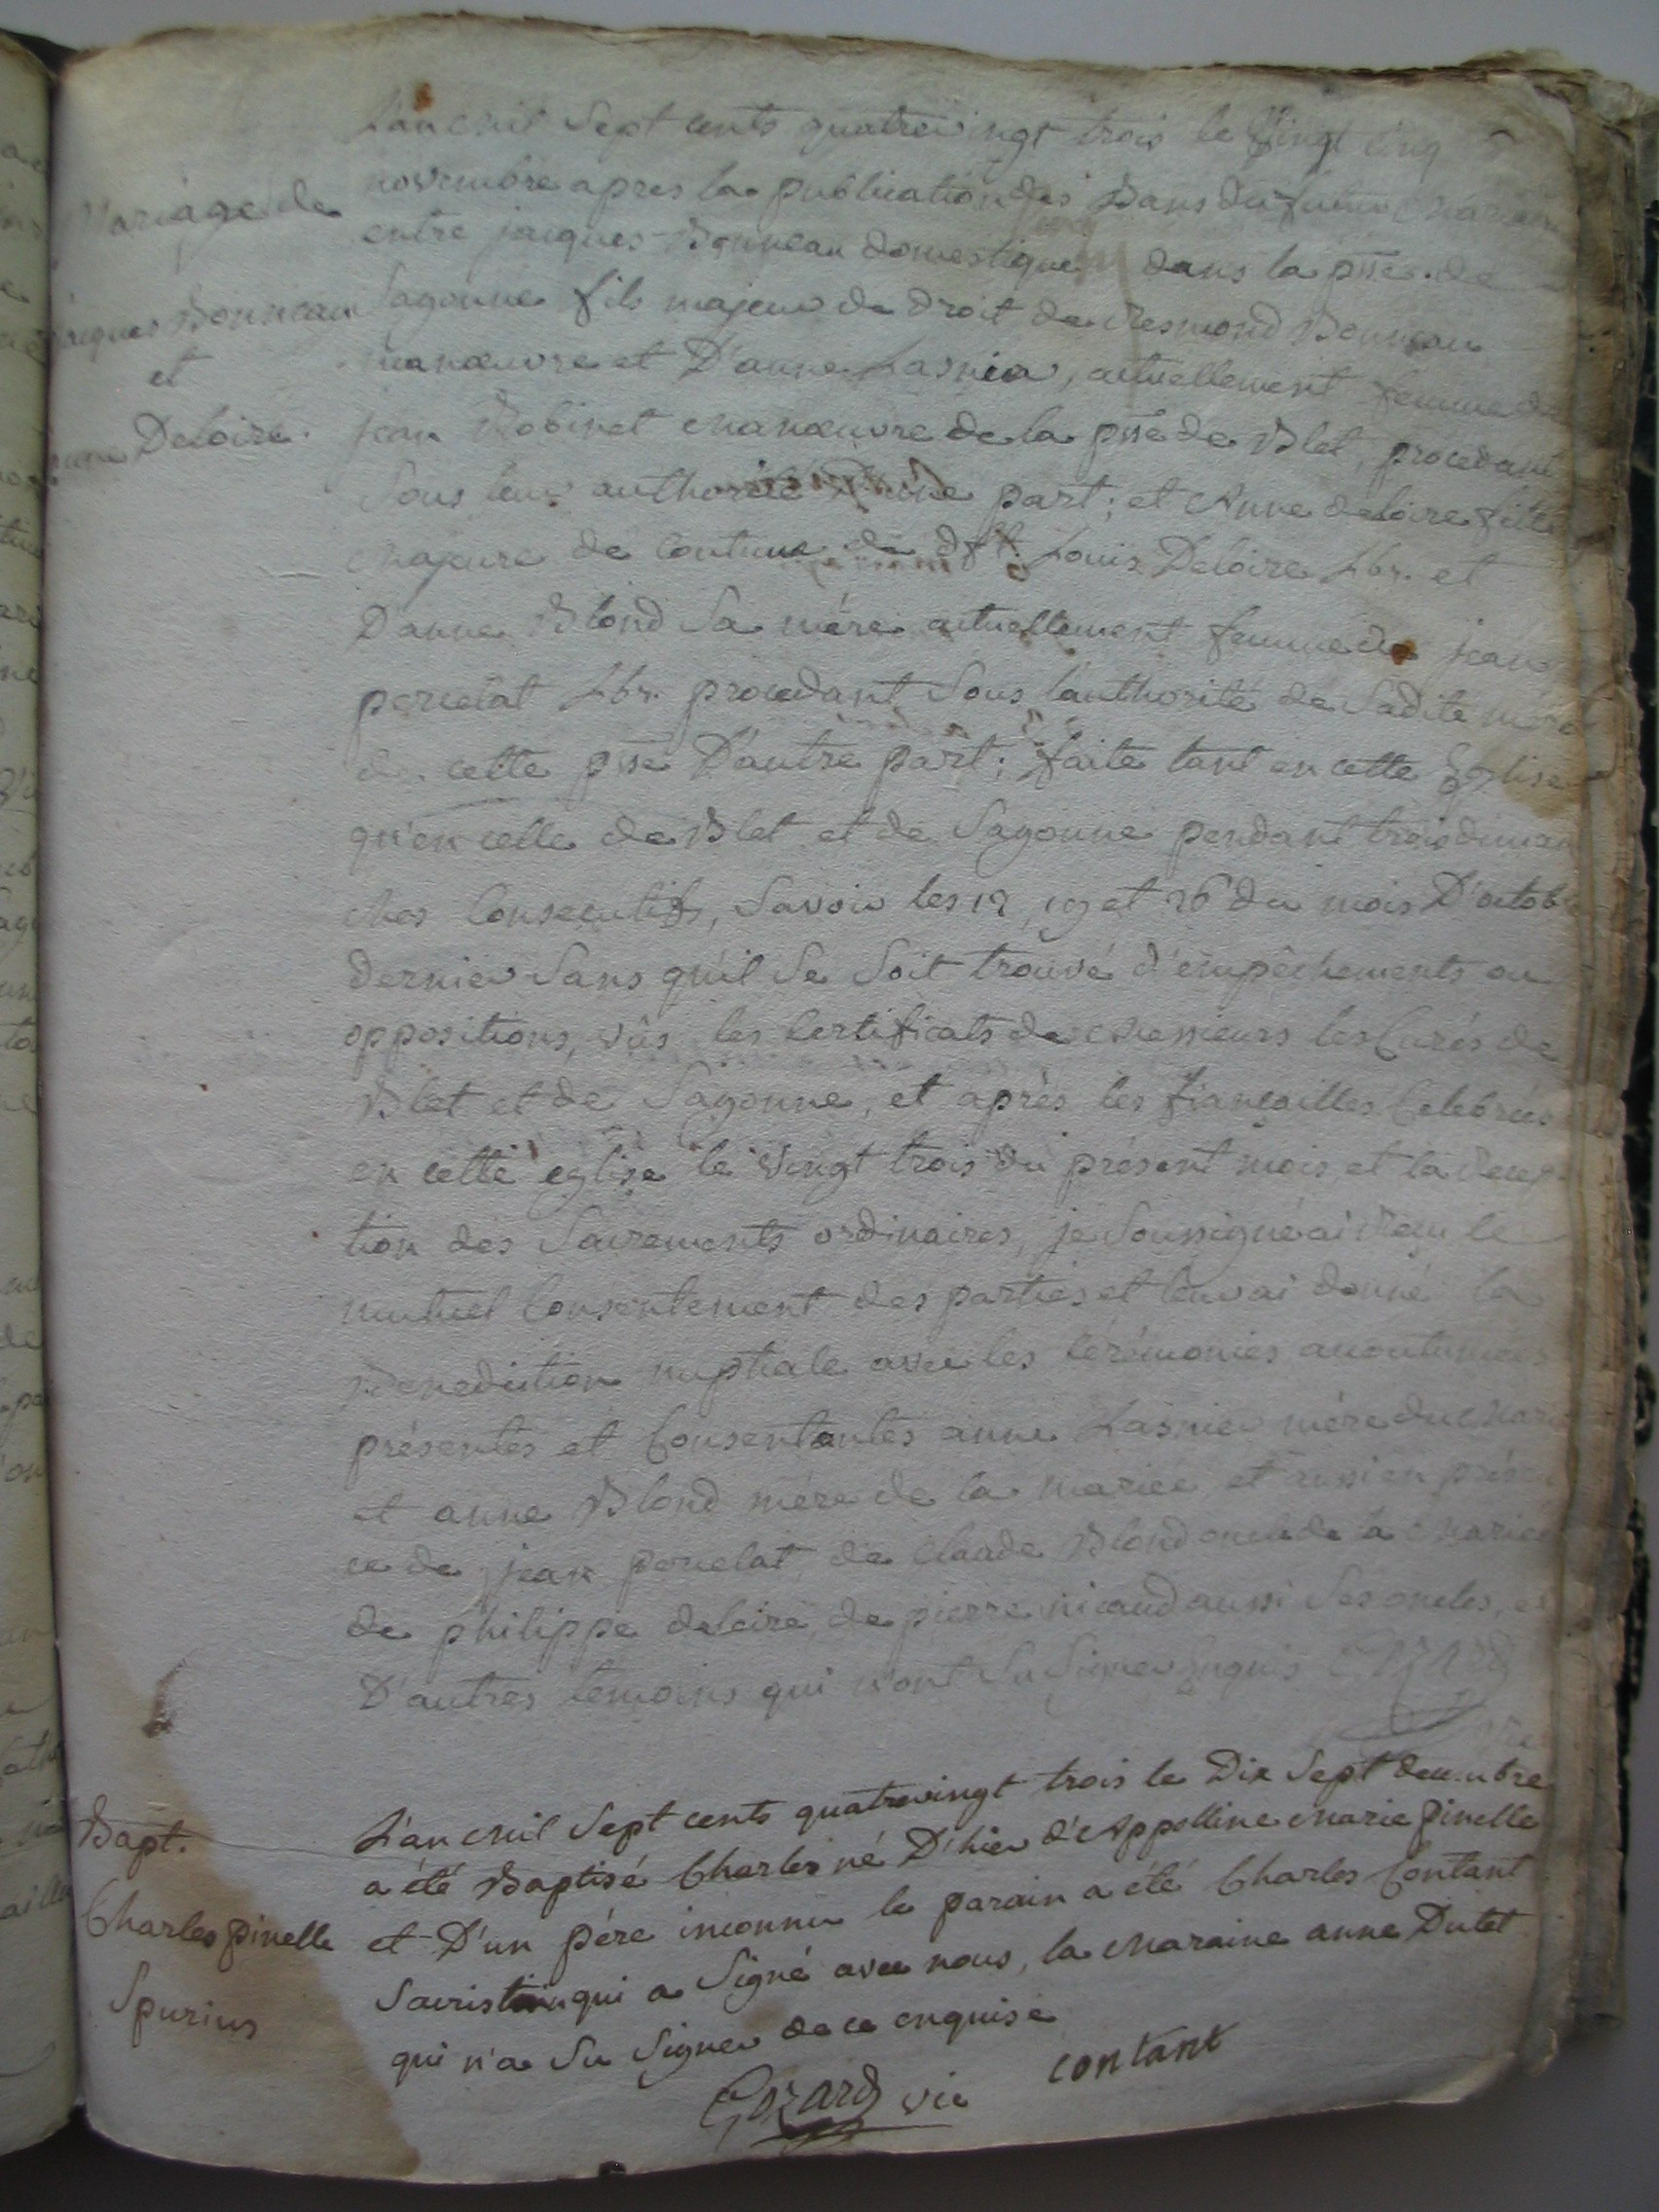 Mariage de
jacques Bonneau
et
anne Deloire.
L'an Mil Sept cents quatrevingt trois le Vingt cinq
novembre apres la publication des Bans du futur Mariage
entre jacques Bonneau domestique dans la psse. de
Sagonne fils majeur de droit de Resmond Bonneau
manœuvre et D'anne Lasnier, actuellement femme de
jean Robinet Manœuvre de la psse de Blet, procedant
Sous leur authorité D'une part; et Anne deloire fille
Majeure de Coutume de dft. Louis Deloire Lbr. et
D'anne Blond Sa mére actuellement femme de jean
percelat Lbr. procedant Sous l'authorité de Sadite mére
de cette psse D'autre part; faite tant en cette Eglise
qu'en celle de Blet et de Sagonne pendant trois diman
ches Consecutifs, Savoir les 12, 19 et 26 du mois D'octobre
dernier Sans qu'il Se Soit trouvé d'empêchements ou
oppositions, vûs les Certificats de Messieurs les Curés de
Blet et de Sagonne, et après les fiançailles Celebrées
en cette eglise le Vingt trois du présent mois, et la Recep
tion des Sacrements ordinaires, je Soussigné ai Reçu le
mutuel Consentement des parties et leur ai donné la
Benediction nuptiale avec les Cérémonies accoutumées
présentes et Consentantes anne Lasnier mére du Mari
et anne Blond mére de la mariée et aussi en présen
ce de jean percelat, de Claude Blond oncle de la Mariée
de philippe deloire, de pierre nicaud aussi Ses oncles, et
D'autres temoins qui n'ont Su Signer Enquis Gozard
Bapt.
Charles pinelle
Spurius
L'an Mil Sept cents quatrevingt trois le Dix Sept decembre
a été Baptisé Charles né D'hier d'Appolline Marie pinelle
et D'un pére inconnu le parain a été Charles Contant
Sacristain qui a Signé avec nous, la Maraine anne Dutet
qui n'a Su Signer de ce enquise
Gozard vic contant